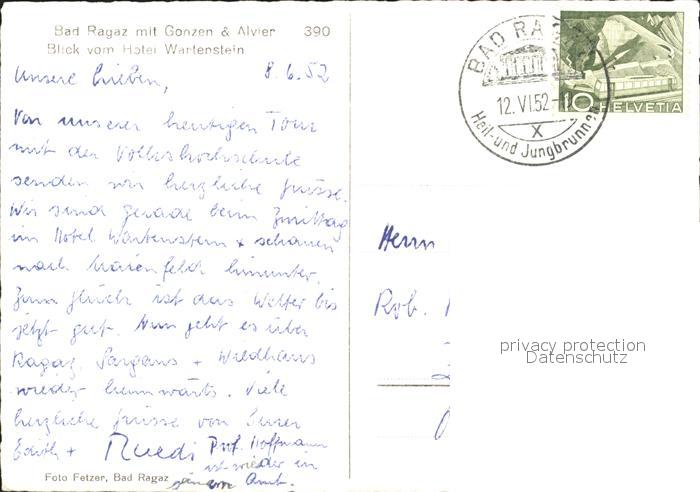 Bad Ragaz mit Gonzen & Alvier 390
Blick vom Hotel Wartenstein
BAD RAGAZ
12.VI.52
X
Heil- und Jungbrunnen
10 HELVETIA
Unsere Lieben, 8.6.52
Von unserer heutigen Tour
mit der Volkshochschule
senden wir herzliche Grüsse.
Wir sind gerade beim Zmittag
im Hotel Wartenstein + schauen
nach Maienfeld hinunter.
Zum Glück ist das Wetter bis
jetzt gut. Nun geht es über
Ragaz, Sargans + Wildhaus
wieder heimwärts. Viele
herzliche Grüsse von Eurer
Edith + Ruedi Prof. Hoffmann
ist wieder in
seinem Amt.
Foto Fetzer, Bad Ragaz
Herrn
Rob.
privacy protection
Datenschutz